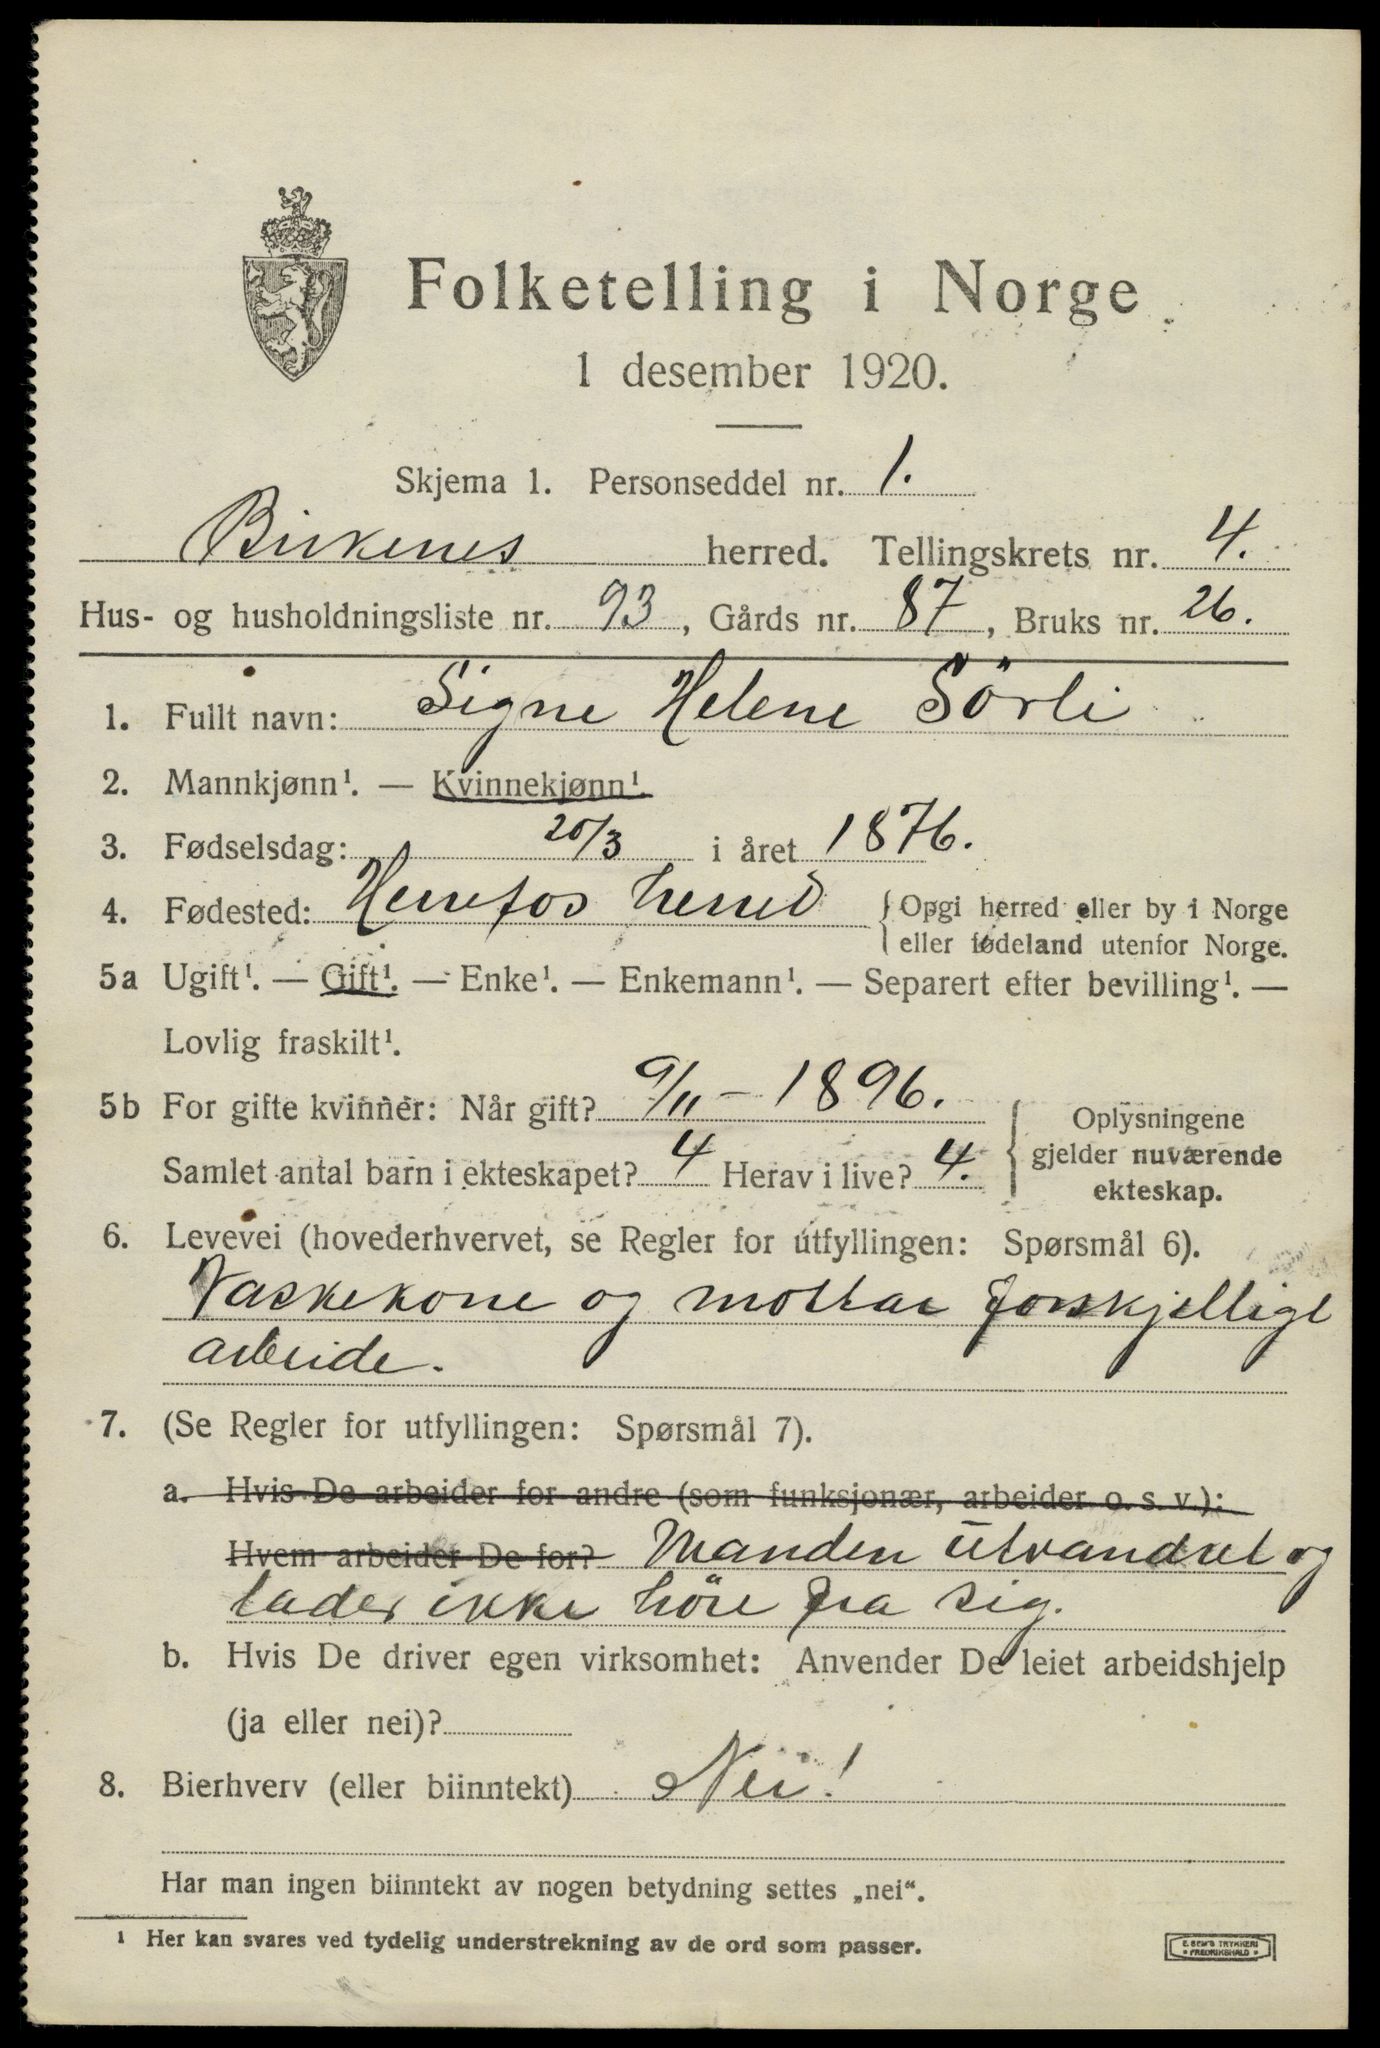 Folketelling i Norge
1 desember 1920.
Skjema 1. Personseddel nr. 1.
Birkenes herred. Tellingskrets nr. 4.
Hus- og husholdningsliste nr. 93, Gårds nr. 87, Bruks nr. 26.
1. Fullt navn: Signe Helene Sörli
2. Mannkjønn¹. — Kvinnekjønn¹.
3. Fødselsdag: 20/3 i året 1876.
4. Fødested: Herefos herred {Opgi herred eller by i Norge
eller fødeland utenfor Norge.
5a Ugift¹. — Gift¹. — Enke¹. — Enkemann¹. — Separert efter bevilling¹. —
Lovlig fraskilt¹.
5b For gifte kvinner: Når gift? 9/11 – 1896.
Samlet antal barn i ekteskapet? 4 Herav i live? 4.
Oplysningene
gjelder nuværende
ekteskap.
6. Levevei (hovederhvervet, se Regler for utfyllingen: Spørsmål 6).
Vaskekone og mottar forskjellige
arbeide.
7. (Se Regler for utfyllingen: Spørsmål 7).
a. Hvis De arbeider for andre (som funksjonær, arbeider o. s. v.):
Hvem arbeider De for? Manden utvandret og
lader ikke höre fra sig.
b. Hvis De driver egen virksomhet: Anvender De leiet arbeidshjelp
(ja eller nei)?
8. Bierhverv (eller biinntekt) Nei!
Har man ingen biinntekt av nogen betydning settes „nei“.
¹ Her kan svares ved tydelig understrekning av de ord som passer.
E. SEM'S TRYKKERI
• FREDRIKSHALD •